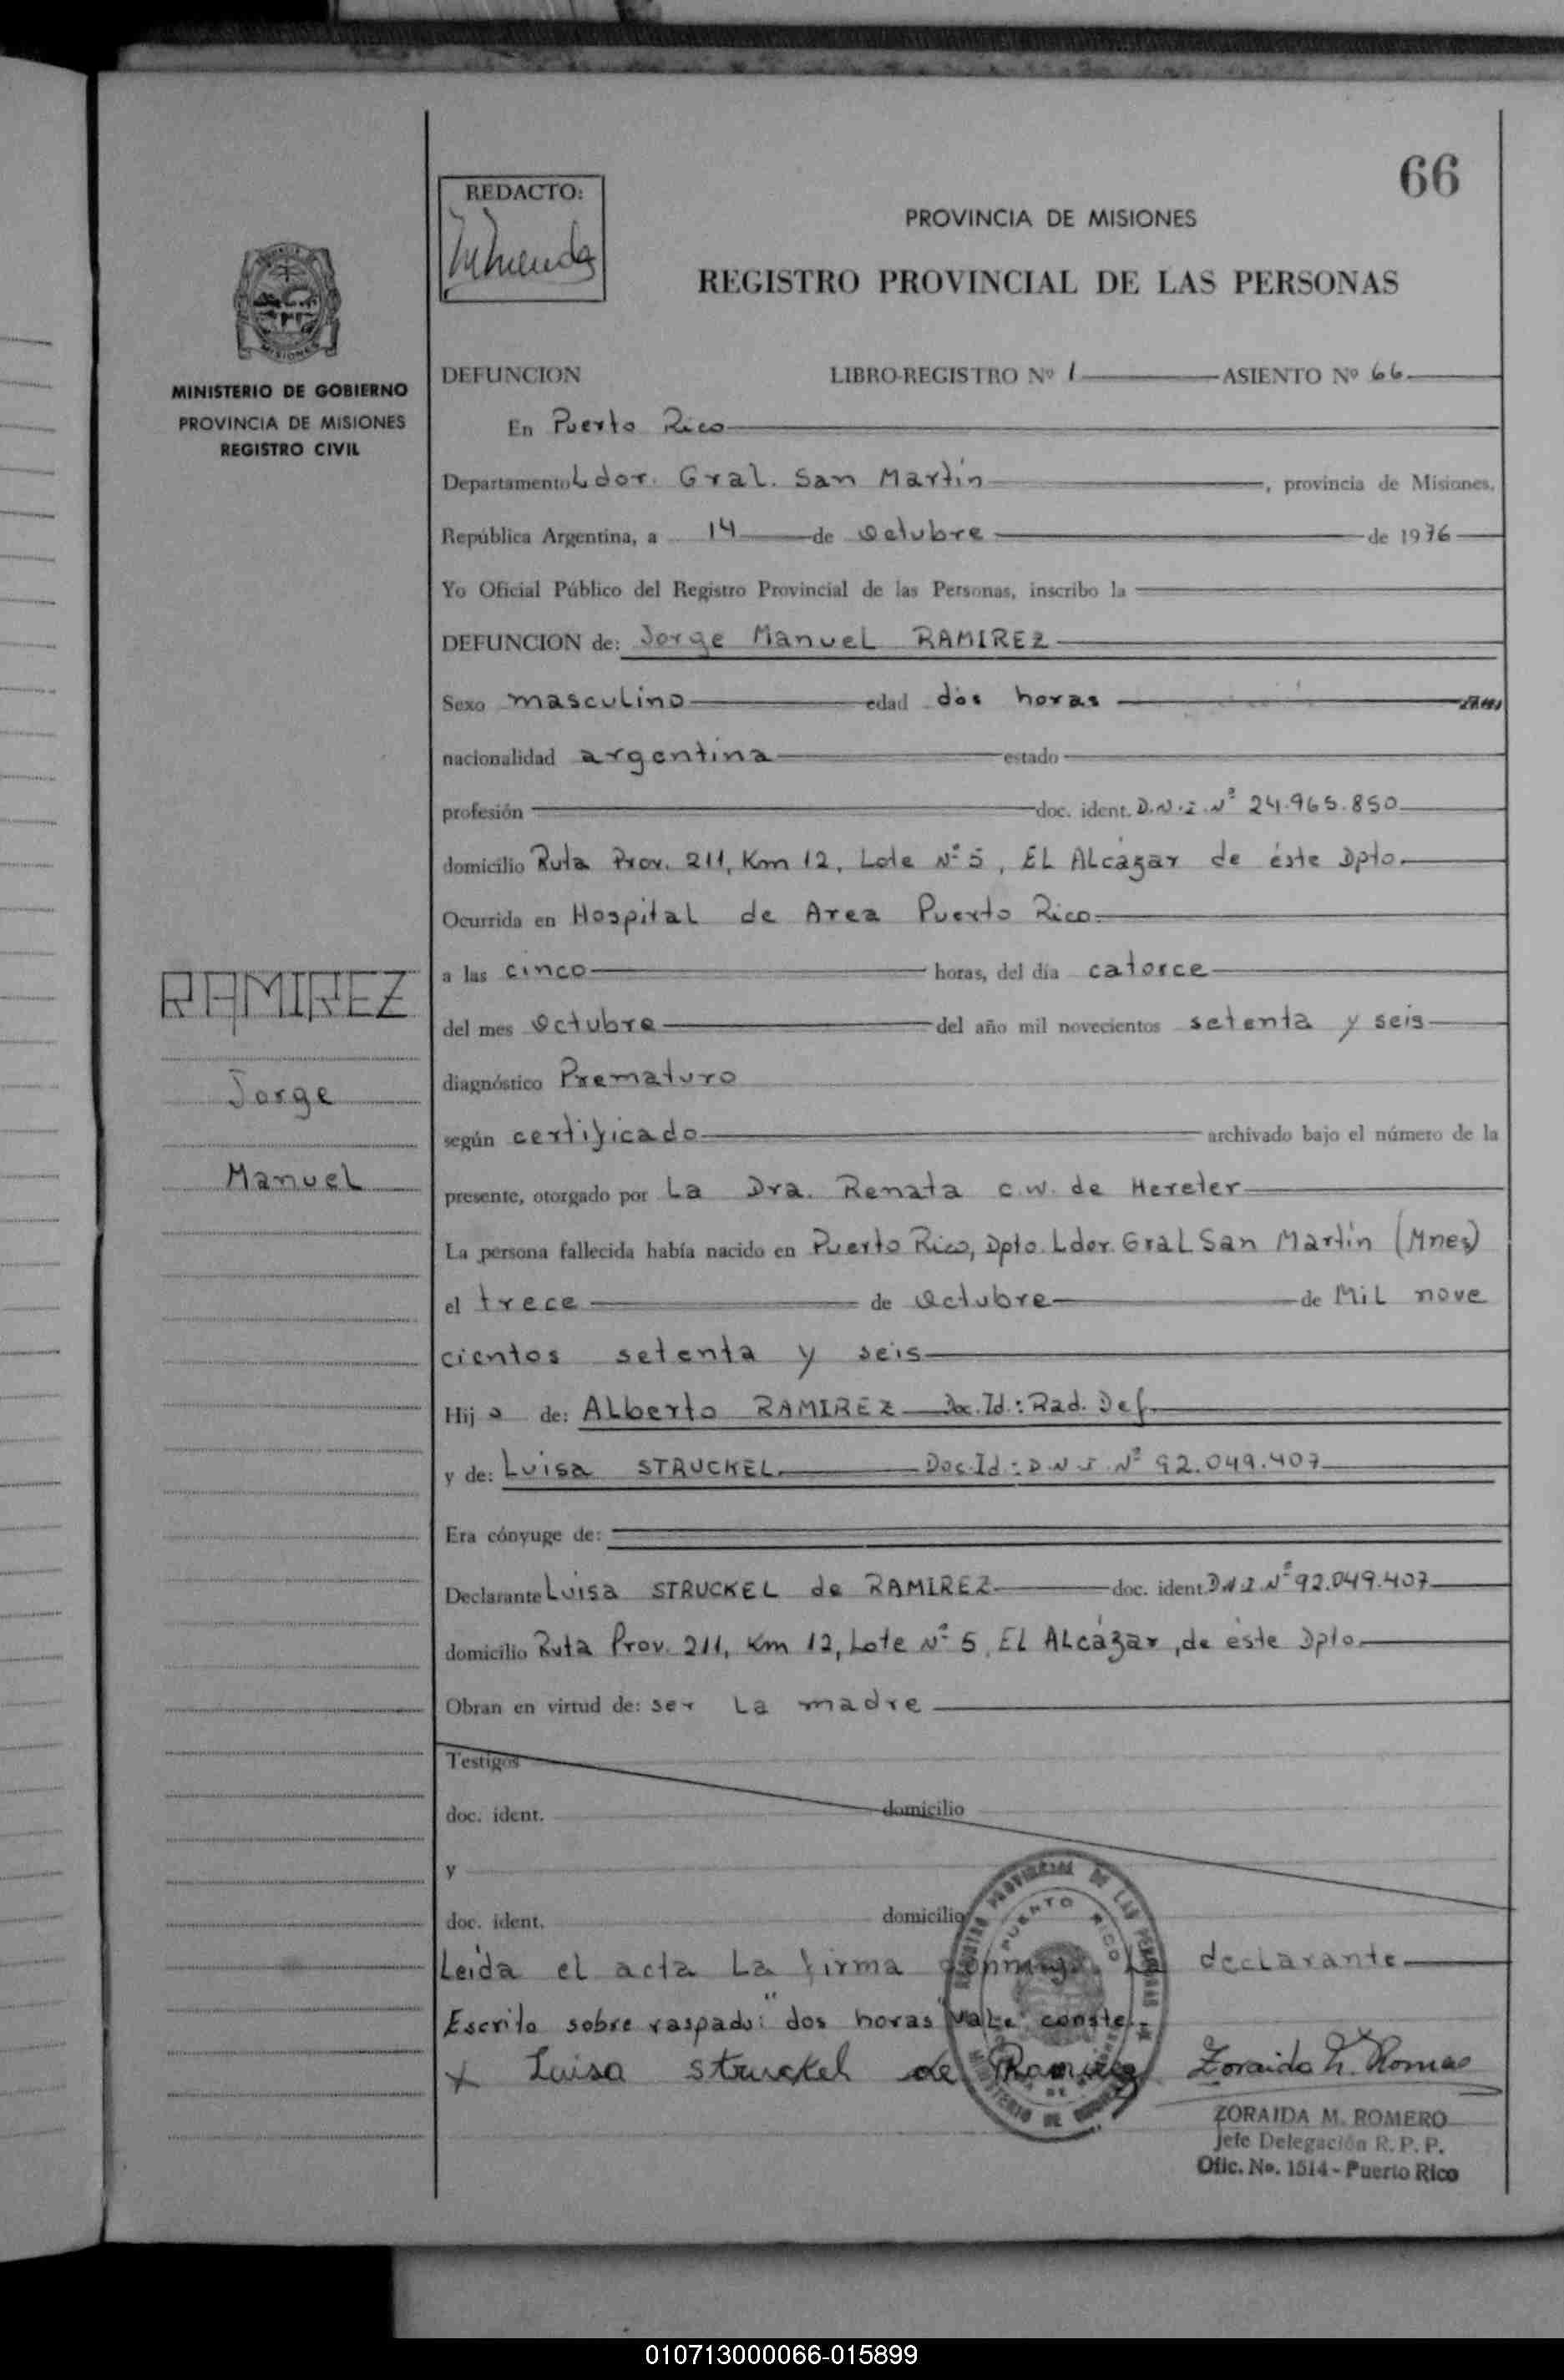 66
REDACTO:
PROVINCIA DE MISIONES
REGISTRO PROVINCIAL DE LAS PERSONAS
MISIONES
MINISTERIO DE GOBIERNO
PROVINCIA DE MISIONES
REGISTRO CIVIL
DEFUNCION LIBRO-REGISTRO Nº 1 ASIENTO Nº 66
En Puerto Rico
Departamento Ldor. Gral. San Martín, provincia de Misiones,
República Argentina, a 14 de Octubre de 1976
Yo Oficial Público del Registro Provincial de las Personas, inscribo la
DEFUNCION de: Jorge Manuel RAMIREZ
Sexo masculino edad dos horas
nacionalidad argentina estado
profesión doc. ident. D.N.I. Nº 24.965.850
domicilio Ruta Prov. 211, Km 12, Lote Nº 5, EL ALcázar de éste Dpto.
Ocurrida en Hospital de Area Puerto Rico.
a las cinco horas, del día catorce
del mes Octubre del año mil novecientos setenta y seis
diagnóstico Prematuro
según certificado archivado bajo el número de la
presente, otorgado por La Dra. Renata C.W. de Hereter
La persona fallecida había nacido en Puerto Rico, Dpto. Ldor. Gral San Martín (Mnes)
el trece de Octubre de Mil nove
cientos setenta y seis
Hijo de: ALberto RAMIREZ Doc. Id.: Rad. Def.
y de: Luisa STRUCKEL Doc. Id.: D.N.I. Nº 92.049.407
Era cónyuge de:
Declarante Luisa STRUCKEL de RAMIREZ doc. ident. D.N.I. Nº 92.049.407
domicilio Ruta Prov. 211, Km 12, Lote Nº 5, EL ALcázar, de éste Dpto.
Obran en virtud de: ser La madre
Testigos
doc. ident. domicilio
y
doc. ident. domicilio
Leída el acta La firma conmigo La declarante
Escrito sobre raspado: "dos horas" VaLe conste.-
x Luisa Struckel de Ramirez Zoraida M. Romero
ZORAIDA M. ROMERO
Jefe Delegación R. P. P.
Ofic. No. 1514 - Puerto Rico
RAMIREZ
Jorge
Manuel
REGISTRO PROVINCIAL DE LAS PERSONAS
PUERTO RICO
MINISTERIO DE GOBIERNO
010713000066-015899